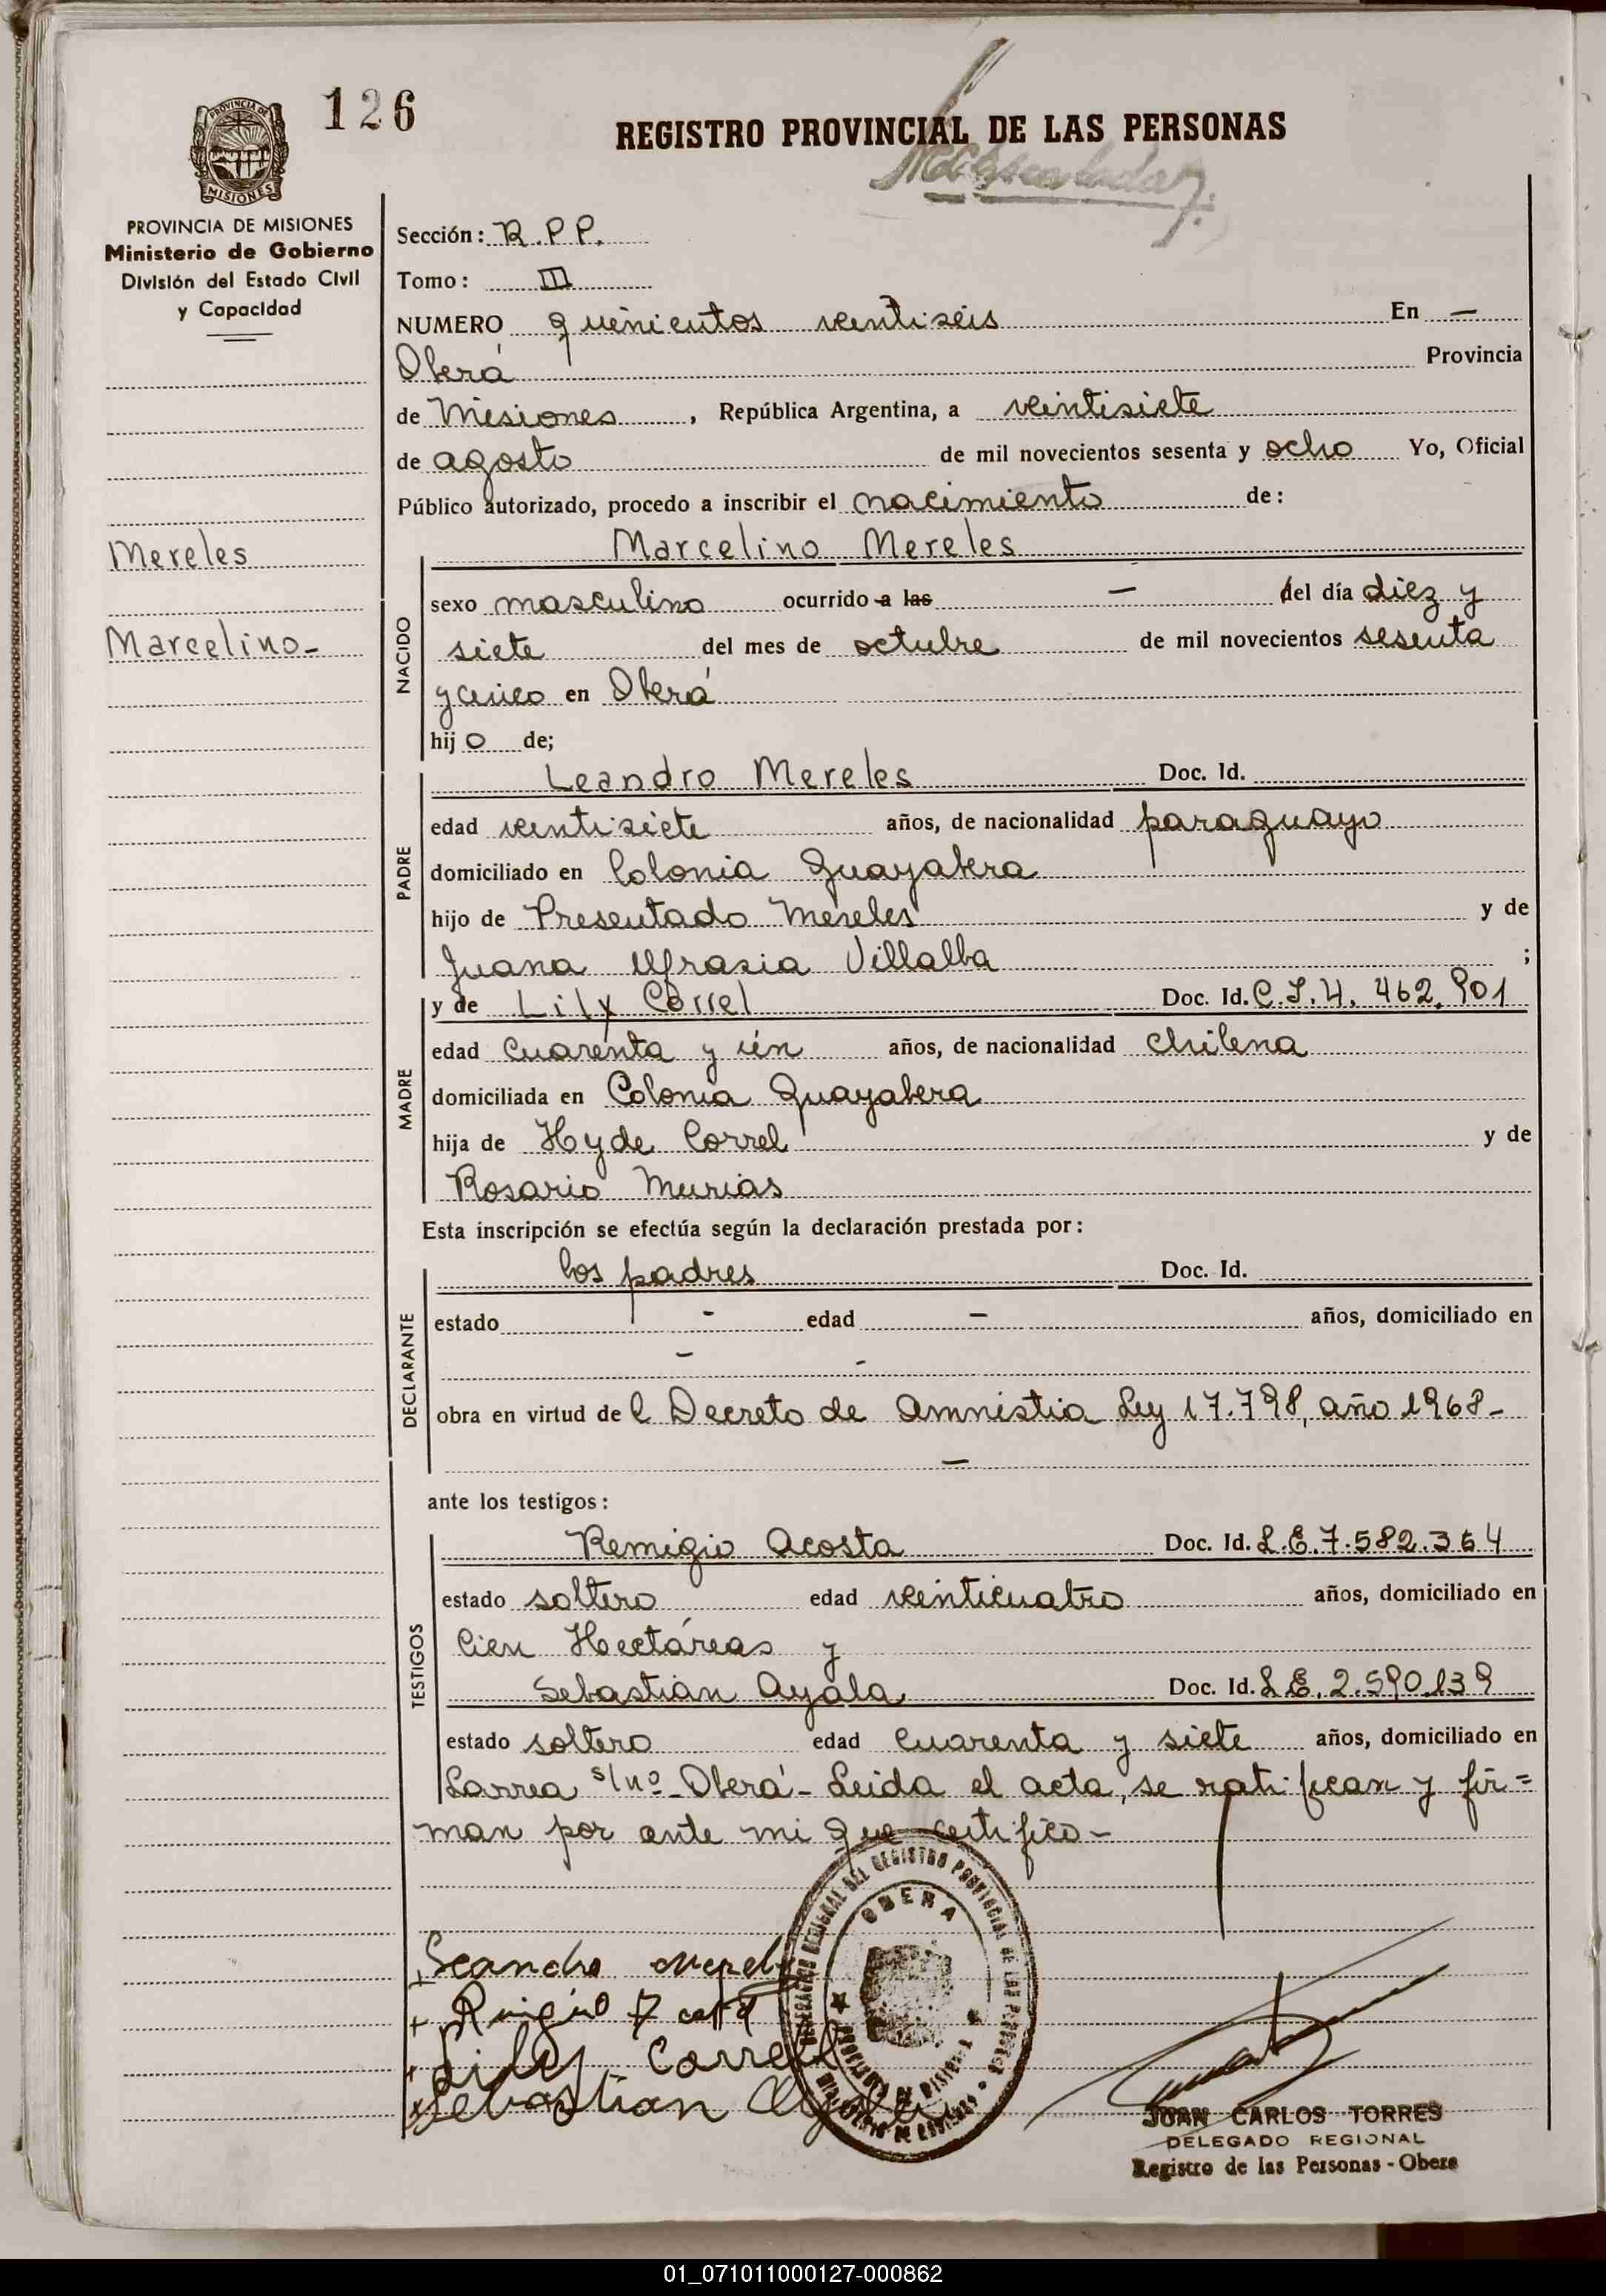 126
REGISTRO PROVINCIAL DE LAS PERSONAS
PROVINCIA DE
MISIONES
PROVINCIA DE MISIONES
Ministerio de Gobierno
División del Estado Civil
y Capacidad
Mereles
Marcelino-
Sección: R.P.P.
Tomo: III
NUMERO quinientos veintiseis En —
Oberá Provincia
de Misiones, República Argentina, a veintisiete
de agosto de mil novecientos sesenta y ocho Yo, Oficial
Público autorizado, procedo a inscribir el nacimiento de:
Marcelino Mereles
NACIDO
sexo masculino ocurrido a las — del día diez y
siete del mes de octubre de mil novecientos sesenta
y cinco en Oberá
hijo de;
PADRE
Leandro Mereles Doc. Id.
edad veintisiete años, de nacionalidad paraguayo
domiciliado en Colonia Guayabera
hijo de Presentado Mereles y de
Juana Ufrasia Villalba ;
MADRE
y de Lily Correl Doc. Id. C.I.H. 462.901
edad cuarenta y un años, de nacionalidad chilena
domiciliada en Colonia Guayabera
hija de Hyde Correl y de
Rosario Murias
Esta inscripción se efectúa según la declaración prestada por:
DECLARANTE
los padres Doc. Id.
estado - edad — años, domiciliado en
- -
obra en virtud del Decreto de Amnistia Ley 17.798, año 1968-
—
ante los testigos:
TESTIGOS
Remigio Acosta Doc. Id. L.E. 7.582.364
estado soltero edad veinticuatro años, domiciliado en
Cien Hectáreas y
Sebastián Ayala Doc. Id. L.E. 2.590.139
estado soltero edad cuarenta y siete años, domiciliado en
Larrea s/nº- Oberá- Leida el acta, se ratifican y fir=
man por ante mi que certifico-
Leandro Merel
Lily Correll
Sebastian Ayala
DELEGACION REGIONAL DEL REGISTRO PROVINCIAL DE LAS PERSONAS
OBERA
PROVINCIA DE MISIONES
JUAN CARLOS TORRES
DELEGADO REGIONAL
Registro de las Personas - Obera
01_071011000127-000862